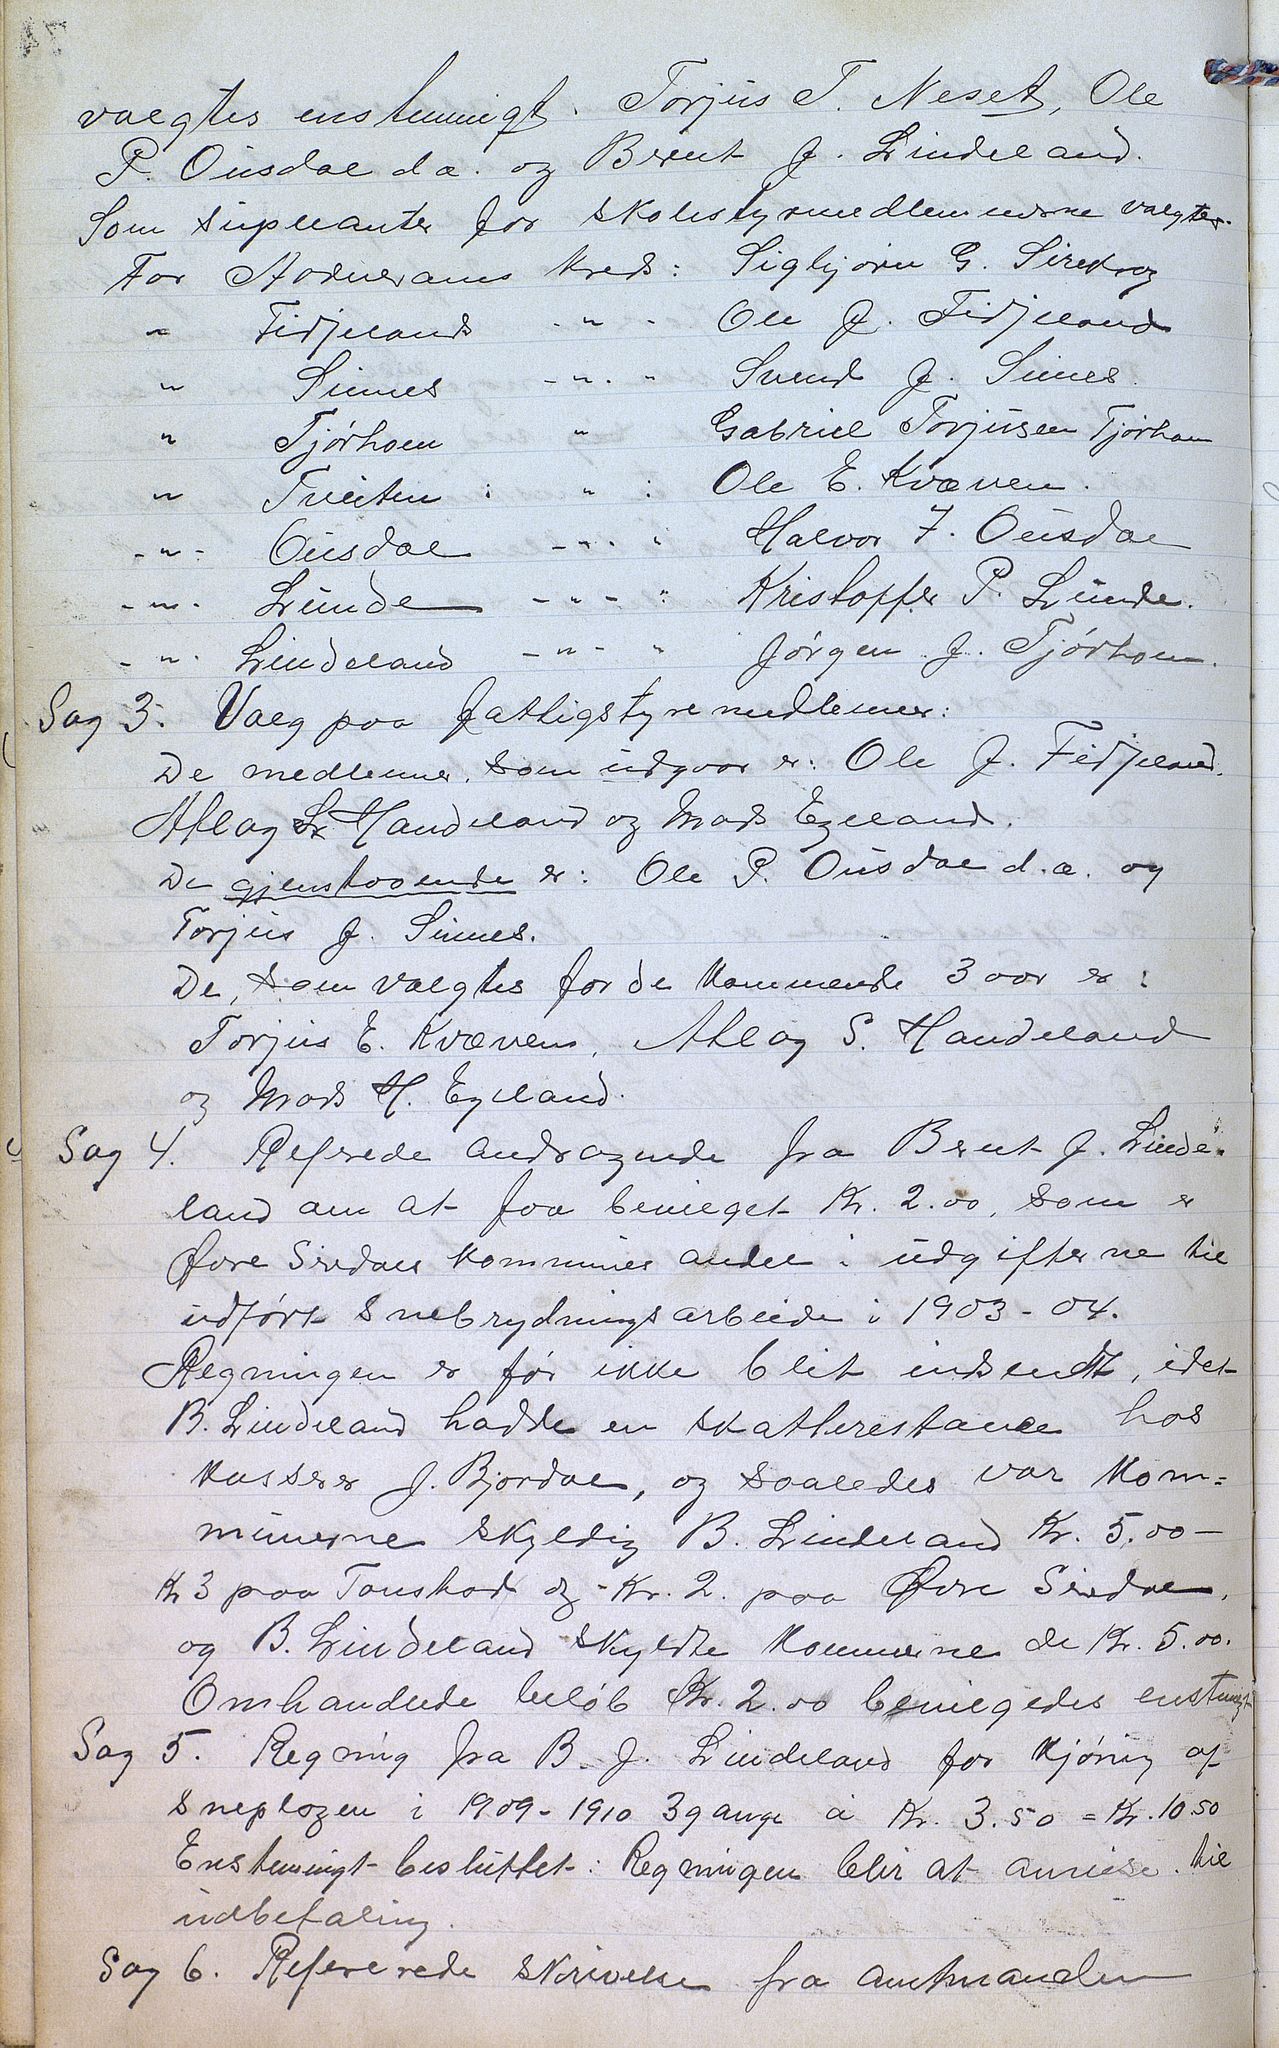 valgtes enstemmigt. Torjus T. Neset, Ole
P. Ousdal d.æ. og Bernt J. Lindeland.
Som supleanter for skolestyrmedlemmerne valgtes.
For kreds: Sigbjørn G. Sirekrog
" Fidjelands -"- Ole J. Fidjeland
" Sinnes -"- " Svend J. Sinnes.
" Tjørhom " Gabriel Torjusen Tjørhom
" Tveiten : " : Ole E. Kvæven.
-"- Ousdal -"- " Halvor T. Ousdal
-"- Lunde -"- " Kristoffer P. Lunde.
-"- Lindeland -"- " Jørgen J. Tjørhom.
Sag 3. Valg paa fattigstyremedlemer:
De medlemer, som udgaar er: Ole J. Fidjeland,
Atlag Handeland og Mads Egeland.
De gjenstaaende er: Ole P. Ousdal d.æ. og
Torjus J. Sinnes.
De, som valgtes for de kommende 3 aar er:
Torjus E. Kvæven, Atlag S. Handeland
og Mads H. Egeland.
Sag 4. Refererede andragende fra Bernt J. Linde-
land om at faa bevilget Kr. 2.00, som er
Øvre Siredals kommunes andel i udgifterne til
udført snebrydningsarbeide i 1903-04.
Regningen er før ikke blit indsendt, idet
B. Lindeland hadde en skatterestance hos
kasserer J. Bjordal, og saaledes var kom=
munerne skyldig B. Lindeland Kr. 5.00 –
Kr 3 paa Tonstad og Kr. 2. paa Øvre Siredal,
og B. Lindeland skyldte kommunerne de Kr. 5.00.
Omhandlede beløb Kr. 2.00 bevilgedes enstemigt
Sag 5. Regning fra B. J. Lindeland for kjøring af
sneplogen i 1909-1910 3 gange à Kr. 3.50 = Kr. 10.50
Enstemmigt besluttet: Regningen blir at anvise til
udbetaling.
Sag 6. Refererede skrivelse fra amtmanden